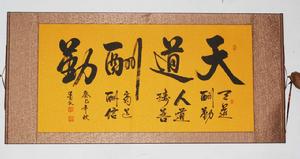 天道酬勤
天道
酬勤
人道
酬善
商道
酬信
癸巳年秋